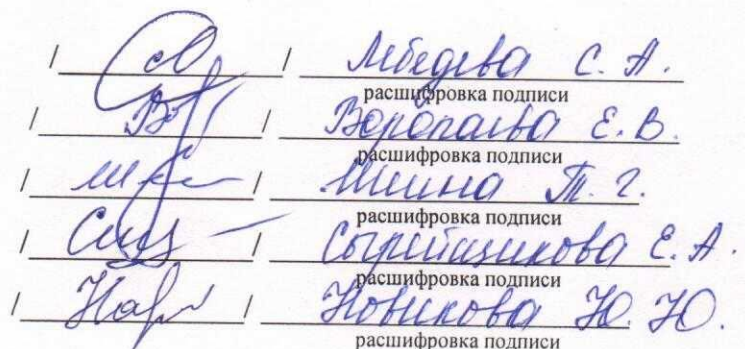 / / Лебедева С. А.
расшифровка подписи
/ / Воропаева Е. В.
расшифровка подписи
/ / Шиина Т. Г.
расшифровка подписи
/ / Сырейщикова Е. А.
расшифровка подписи
/ / Новикова Ю. Ю.
расшифровка подписи